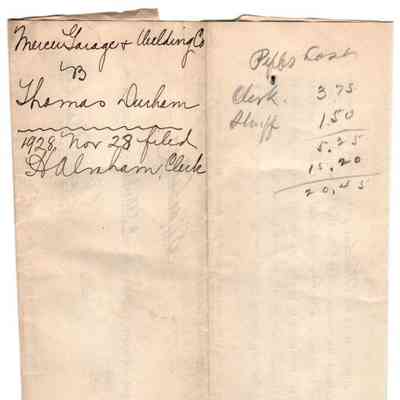 Mercer Garage & Welding Co
VS
Thomas Durham
1928, Nov 28 filed
H Abraham, Clerk
Pltffs Cost
Clerk. 3.75
Sheriff 1.50
5.25
15.20
20.45